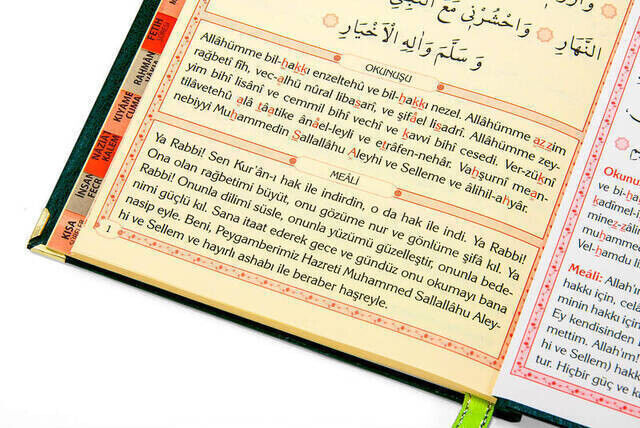 النَّهَارِ ۞ وَاحْشُرْنِي مَعَ النَّبِيِّ
وَسَلَّمَ وَاٰلِهِ الْاَخْيَارِ
OKUNUŞU
Allâhümme bil-hakkı enzeltehû ve bil-hakkı nezel. Allâhümme azzim
rağbetî fîh, vec-alhü nûral libasarî, ve şifâel lisadrî. Allâhümme zey-
yim bihî lisânî ve cemmil bihî vechî ve kavvi bihî cesedî. Ver-züknî
tilâvetehû alâ tâatike ânâel-leyli ve etrâfen-nehâr. Vahşurnî mean-
nebiyyi Muhammedin Sallallâhu Aleyhi ve Selleme ve âlihil-ahyâr.
MEÂLİ
Ya Rabbi! Sen Kur'ân-ı hak ile indirdin, o da hak ile indi. Ya Rabbi!
Ona olan rağbetimi büyüt, onu gözüme nur ve gönlüme şifâ kıl. Ya
Rabbi! Onunla dilimi süsle, onunla yüzümü güzelleştir, onunla bede-
nimi güçlü kıl. Sana itaat ederek gece ve gündüz onu okumayı bana
nasip eyle. Beni, Peygamberimiz Hazreti Muhammed Sallallâhu Aley-
hi ve Sellem ve hayırlı ashabı ile beraber haşreyle.
1
FETİH
RAHMÂN
KIYÂME
CUMA
NÂZİAT
KALEM
İNSAN
FECR
KISA
Okunu
ve bi-ha
kadîmel-i
minez-zâlim
Muhamm
Vel-hamdu li
Meâli: Allah'ım
hakkı için, cel
minin hakkı içi
Ey kendisinden
mettim. Allah'ım!
hi ve Sellem) hakk
tur. Hiçbir güç ve k